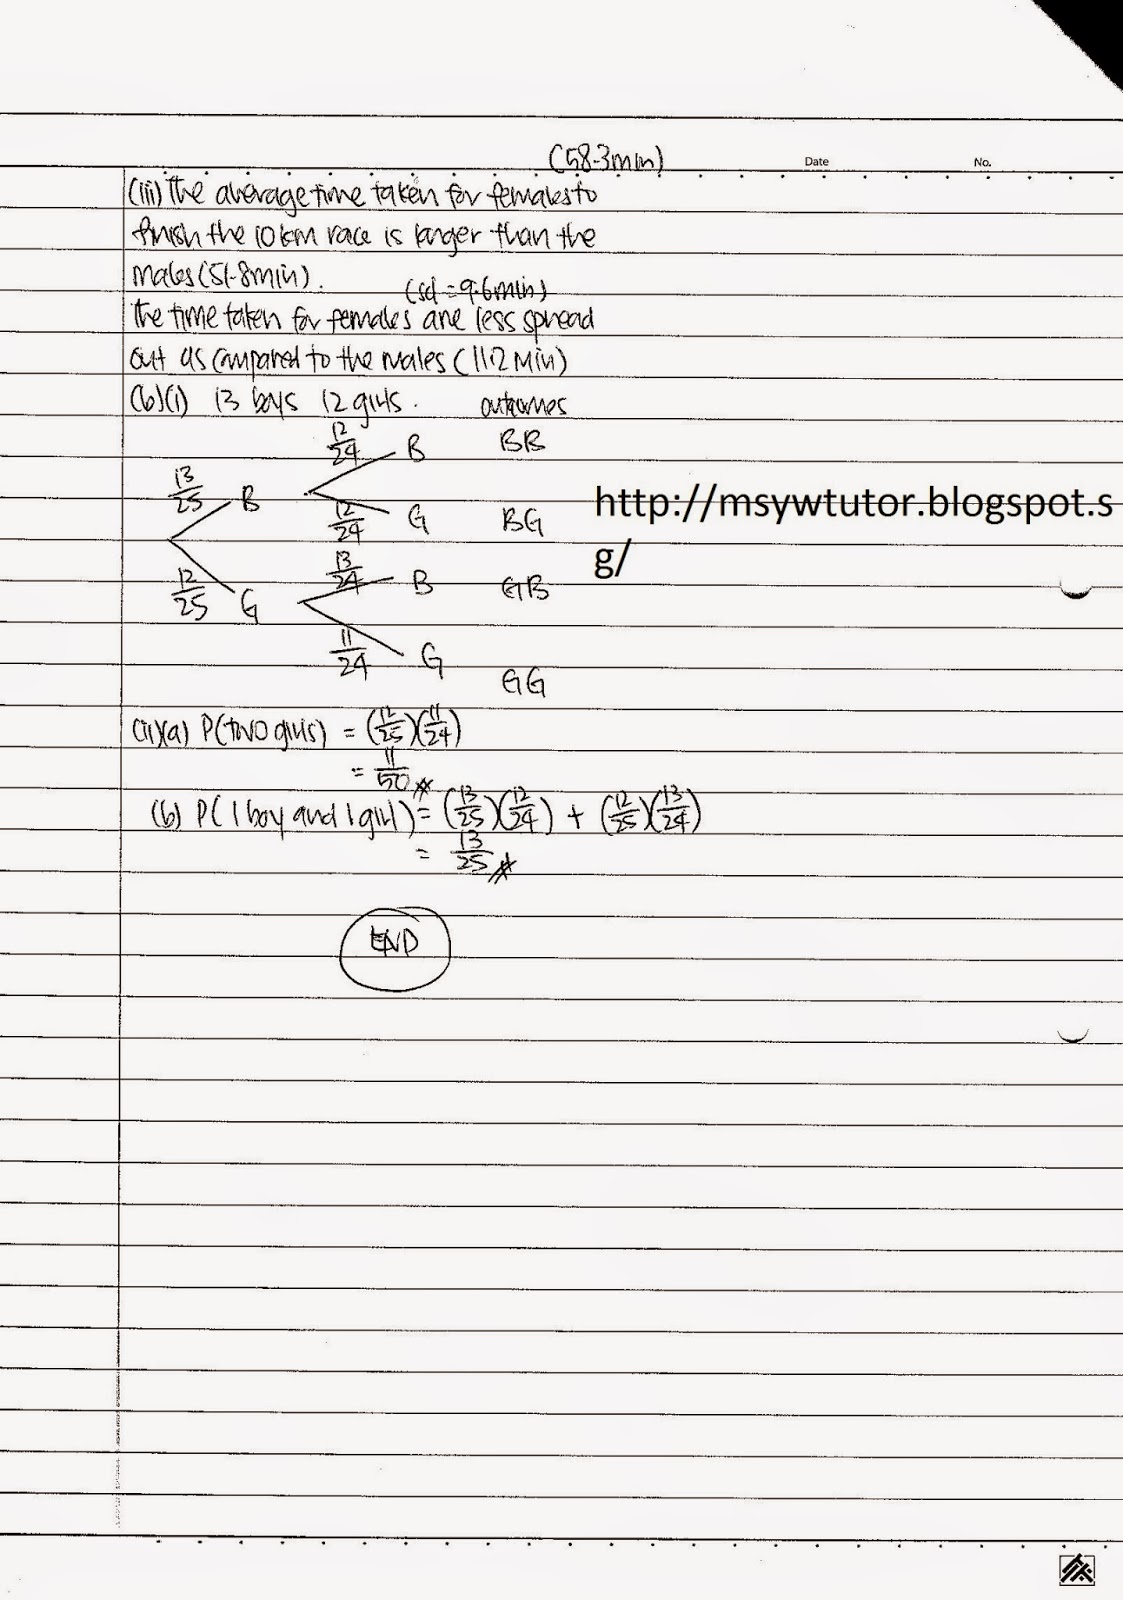 (58.3min)
Date
No.
(iii) The average time taken for females to
finish the 10km race is longer than the
males (51.8min).
(sd = 9.6min)
The time taken for females are less spread
out as compared to the males (11.2 min)
(b)(i) 13 boys 12 girls. outcomes
12/24 B BB
13/25 B
12/24 G BG
http://msywtutor.blogspot.s
g/
13/24 B GB
12/25 G
11/24 G
GG
(ii)(a) P(two girls) = (12/25)(11/24)
= 11/50
(b) P(1 boy and 1 girl) = (13/25)(12/24) + (12/25)(13/24)
= 13/25
END